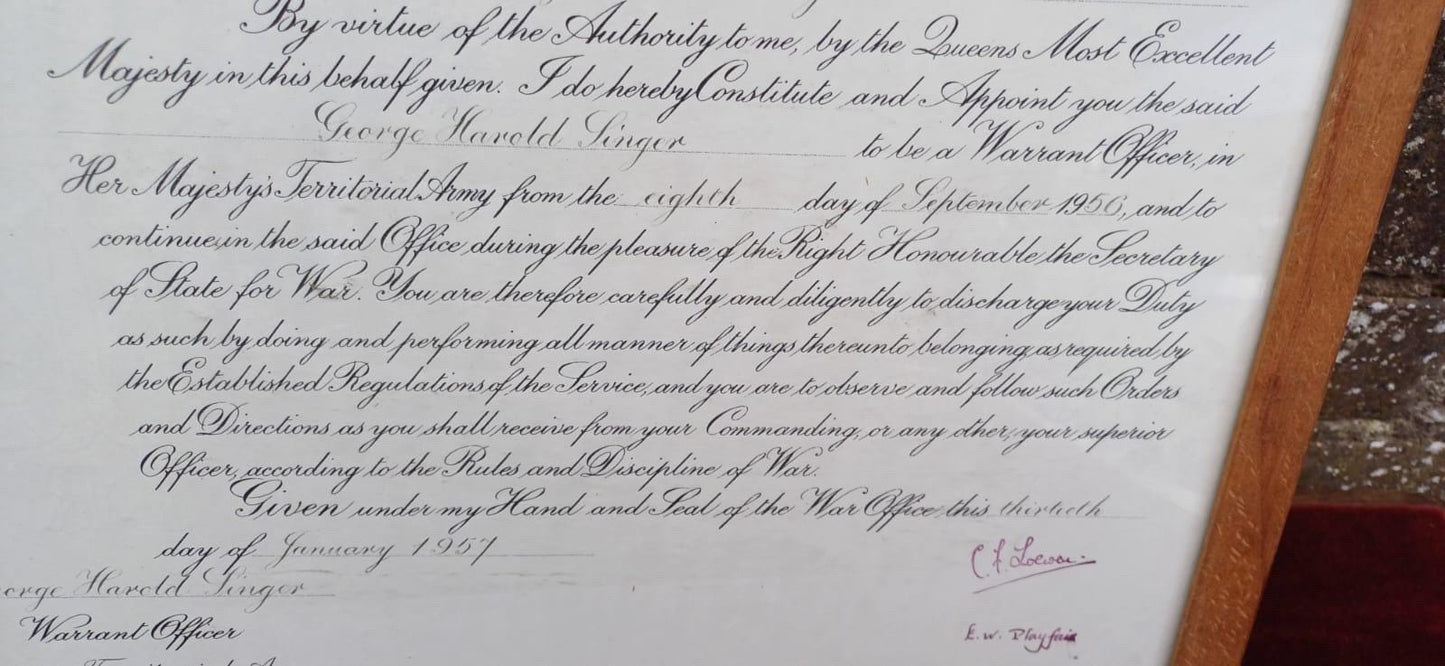 By virtue of the Authority to me, by the Queens Most Excellent
Majesty in this behalf given. I do hereby Constitute and Appoint you the said
George Harold Singer to be a Warrant Officer, in
Her Majesty's Territorial Army from the eighth day of September 1956, and to
continue in the said Office during the pleasure of the Right Honourable the Secretary
of State for War. You are therefore carefully and diligently to discharge your Duty
as such by doing and performing all manner of things thereunto belonging, as required by
the Established Regulations of the Service, and you are to observe and follow such Orders
and Directions as you shall receive from your Commanding, or any other, your superior
Officer, according to the Rules and Discipline of War.
Given under my Hand and Seal of the War Office this thirtieth
day of January 1957
orge Harold Singer
Warrant Officer
E. W. Playfair